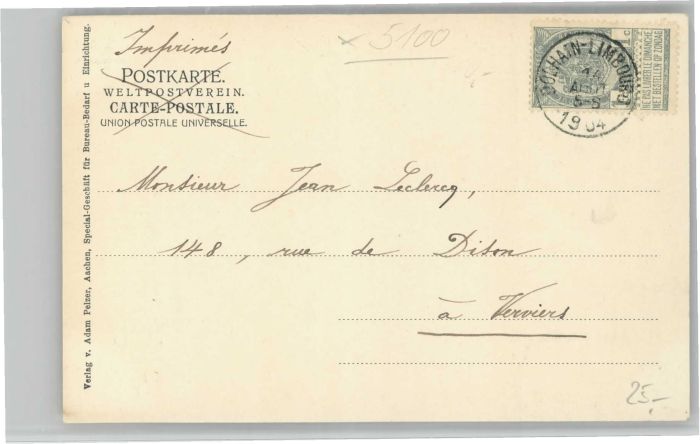 Imprimés
5100
POSTKARTE.
WELTPOSTVEREIN.
CARTE-POSTALE.
UNION POSTALE UNIVERSELLE.
DOLHAIN-LIMBOURG
5-6
1904
1c
NE PAS LIVRER LE DIMANCHE
NIET BESTELLEN OP ZONDAG
Monsieur Jean Leclercq,
148, rue de Dison
à Verviers
25,-
Verlag v. Adam Pelzer, Aachen, Special-Geschäft für Bureau-Bedarf u Einrichtung.